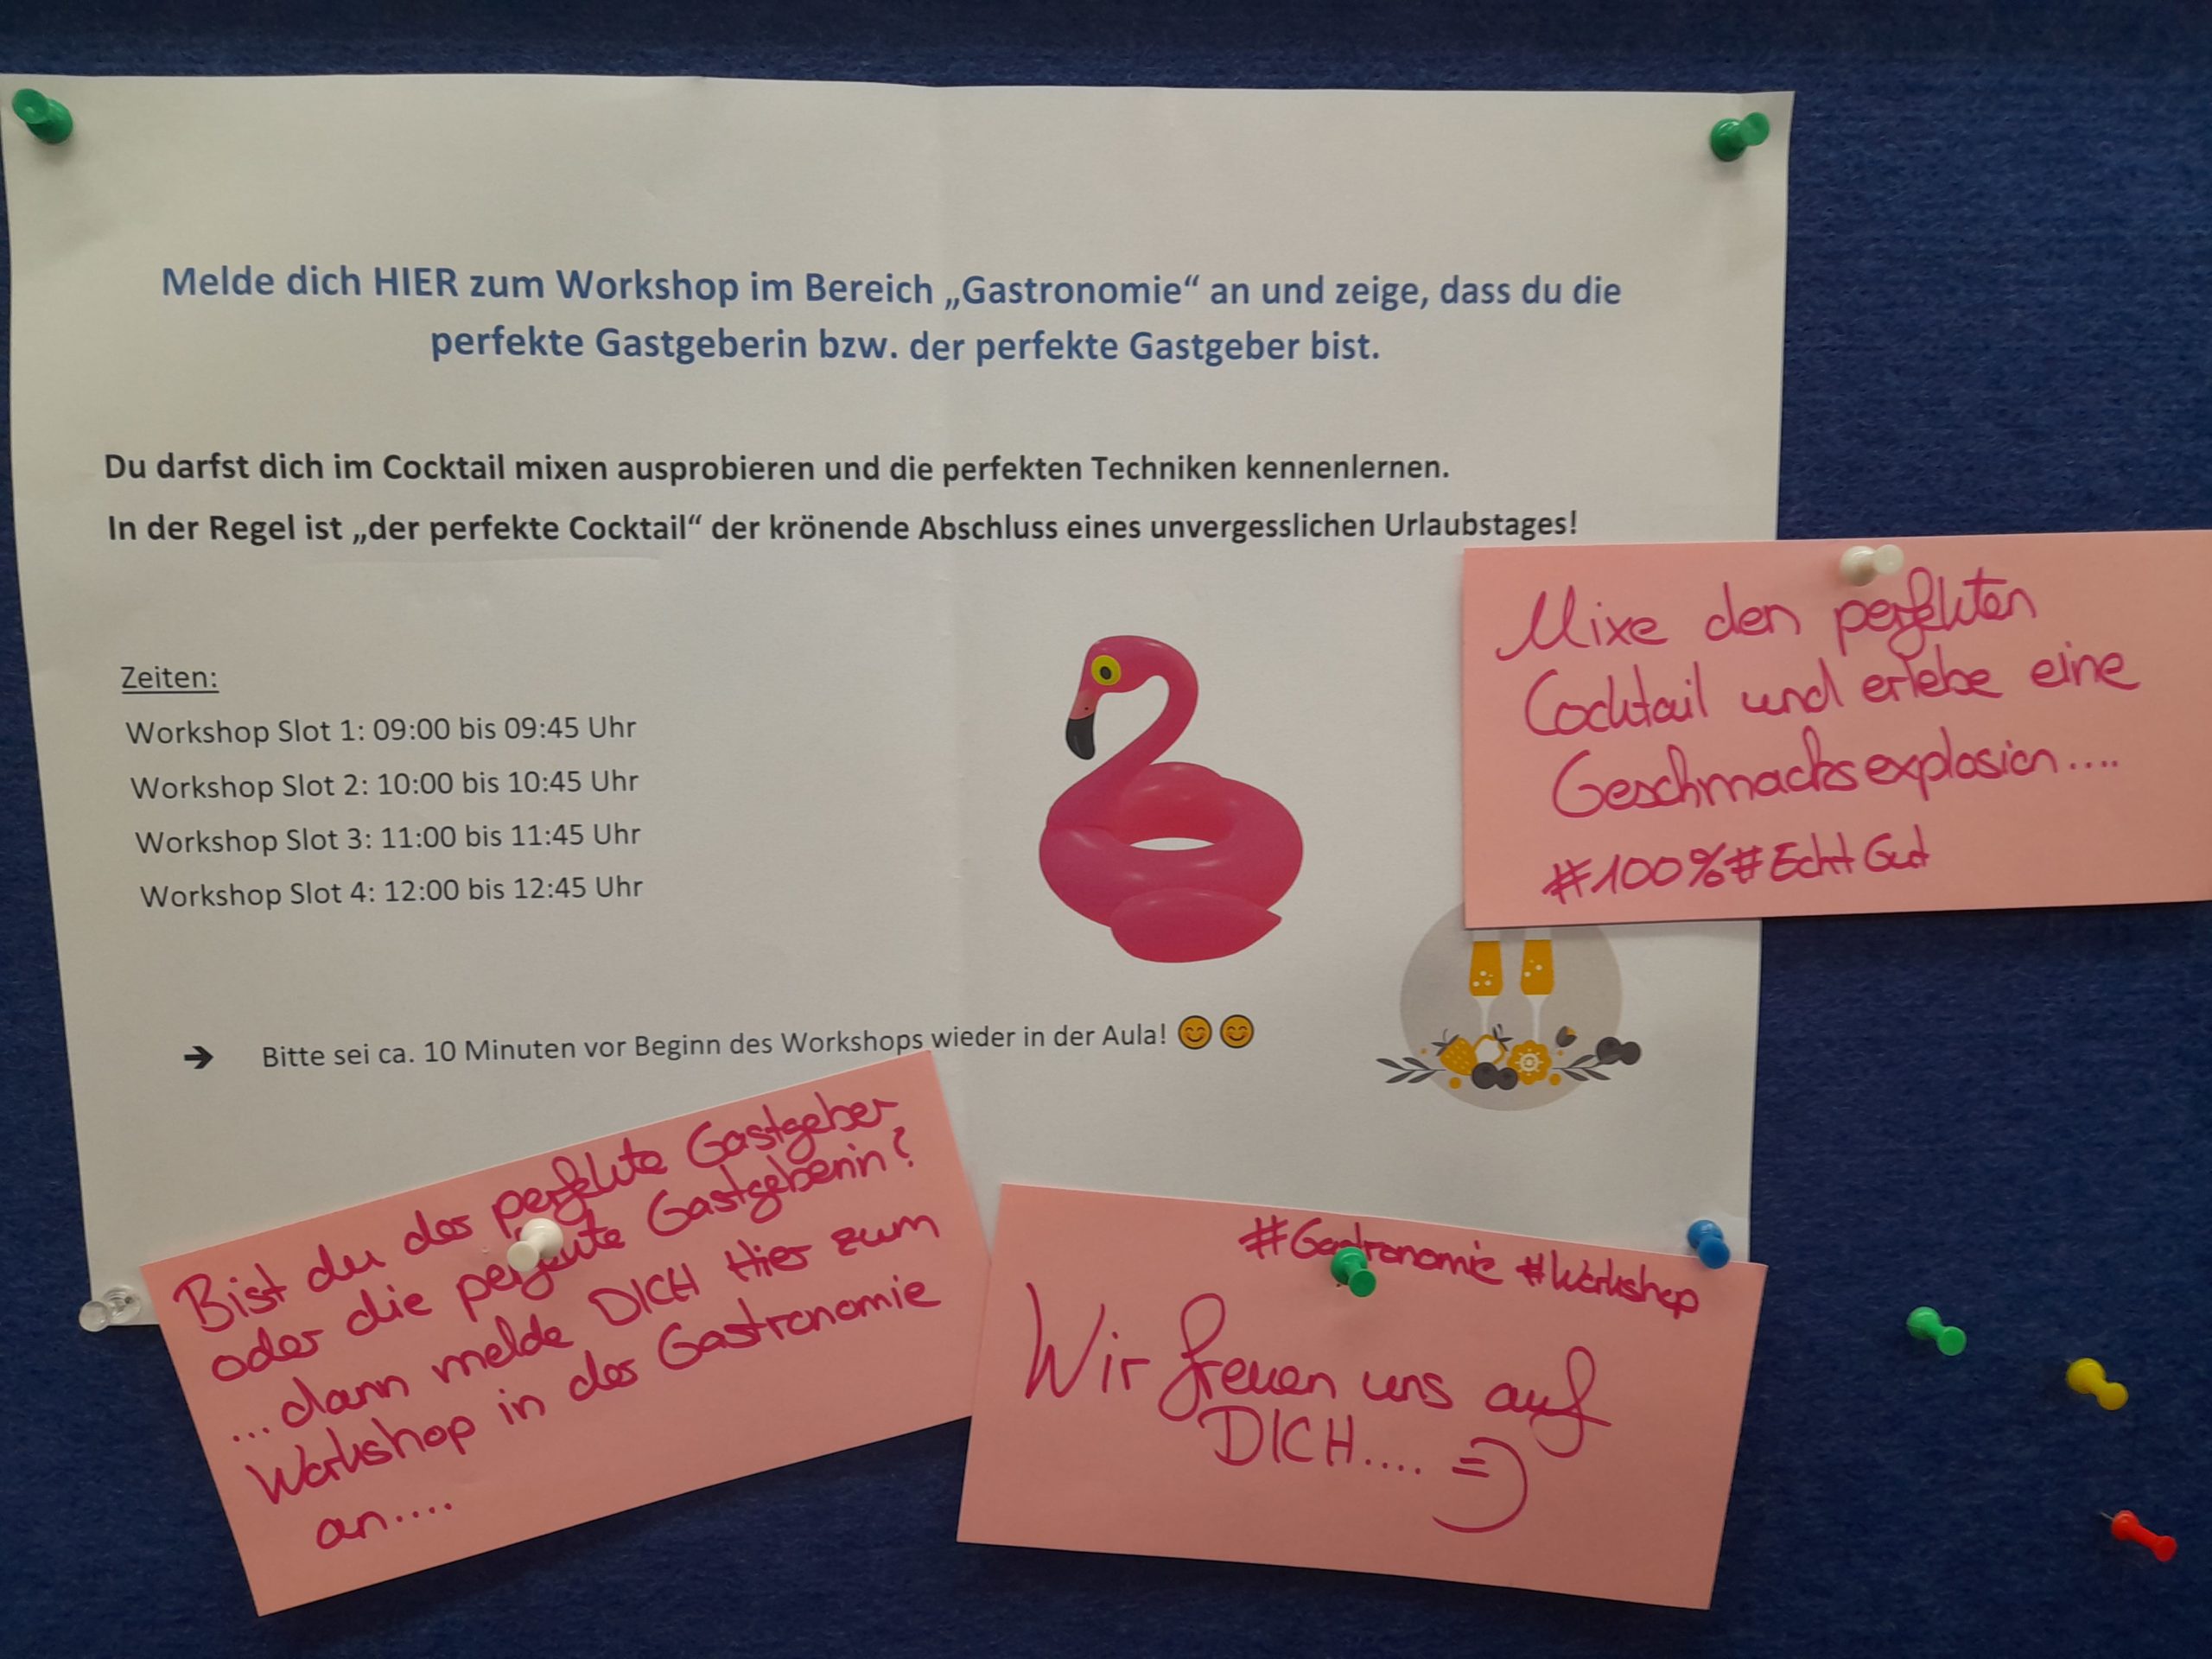 Melde dich HIER zum Workshop im Bereich „Gastronomie“ an und zeige, dass du die
perfekte Gastgeberin bzw. der perfekte Gastgeber bist.
Du darfst dich im Cocktail mixen ausprobieren und die perfekten Techniken kennenlernen.
In der Regel ist „der perfekte Cocktail“ der krönende Abschluss eines unvergesslichen Urlaubstages!
Zeiten:
Workshop Slot 1: 09:00 bis 09:45 Uhr
Workshop Slot 2: 10:00 bis 10:45 Uhr
Workshop Slot 3: 11:00 bis 11:45 Uhr
Workshop Slot 4: 12:00 bis 12:45 Uhr
→ Bitte sei ca. 10 Minuten vor Beginn des Workshops wieder in der Aula! 😊😊
Mixe den perfekten
Cocktail und erlebe eine
Geschmacksexplosion....
#100%#EchtGut
Bist du der perfekte Gastgeber
oder die perfekte Gastgeberin?
...dann melde DICH Hier zum
Workshop in der Gastronomie
an....
#Gastronomie #Workshop
Wir freuen uns auf
DICH.... =)